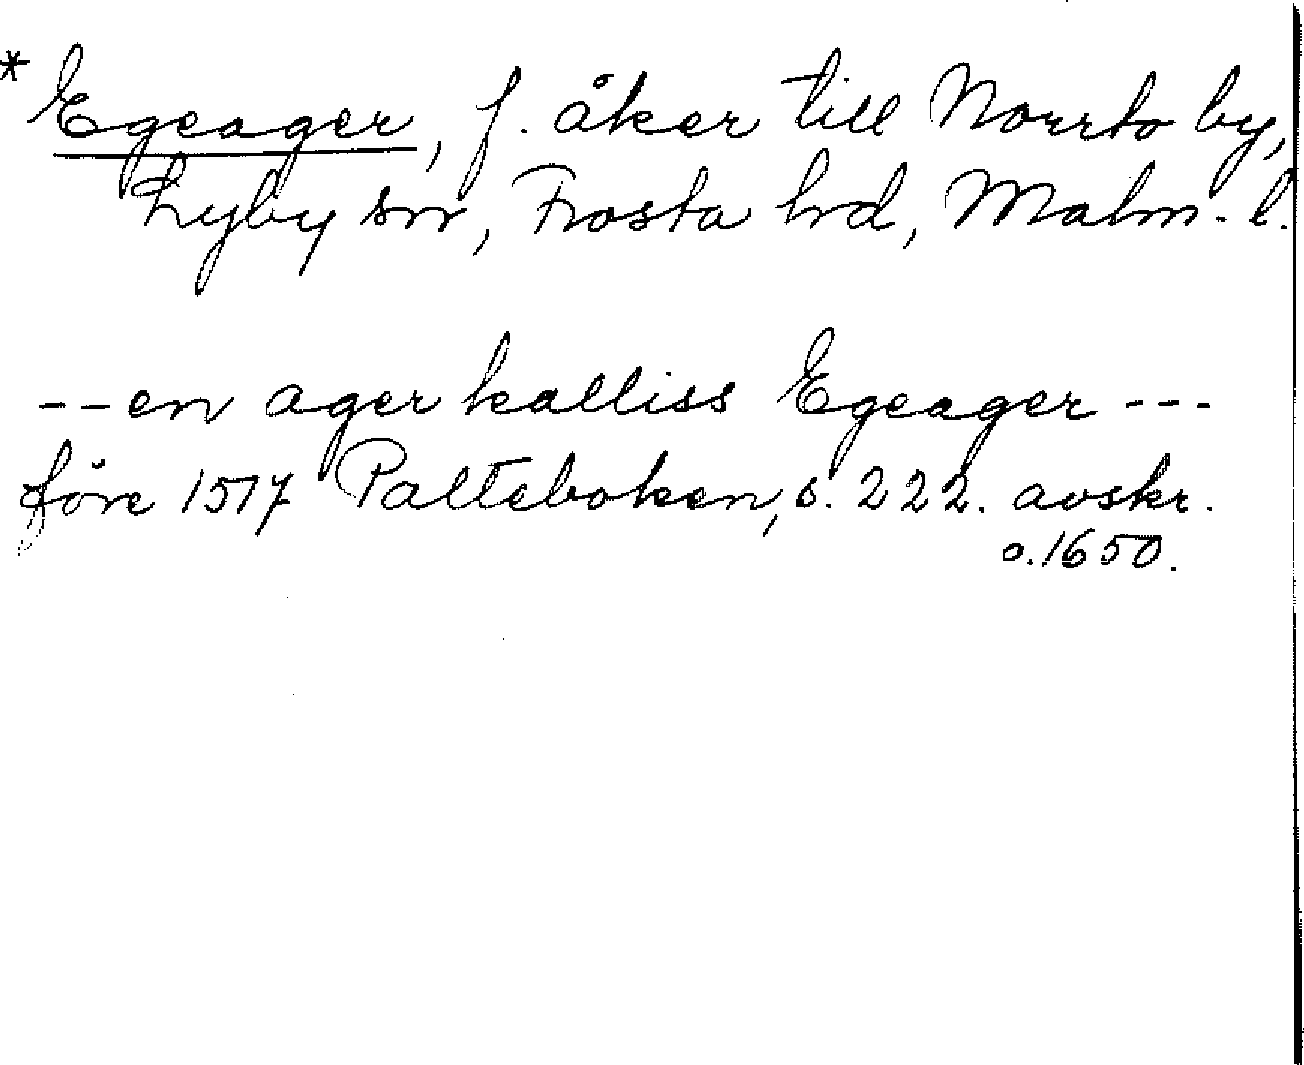 * Egeager, f. åker till Norrto by,
Lyby sn, Frosta hd, Malm. l.
-- en ager kalliss Egeager ---
före 1517 Palteboken, s. 222. avskr.
o. 1650.